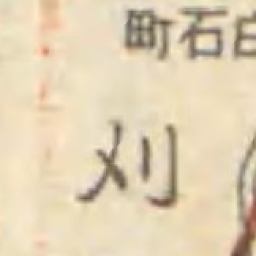 町石白
刈